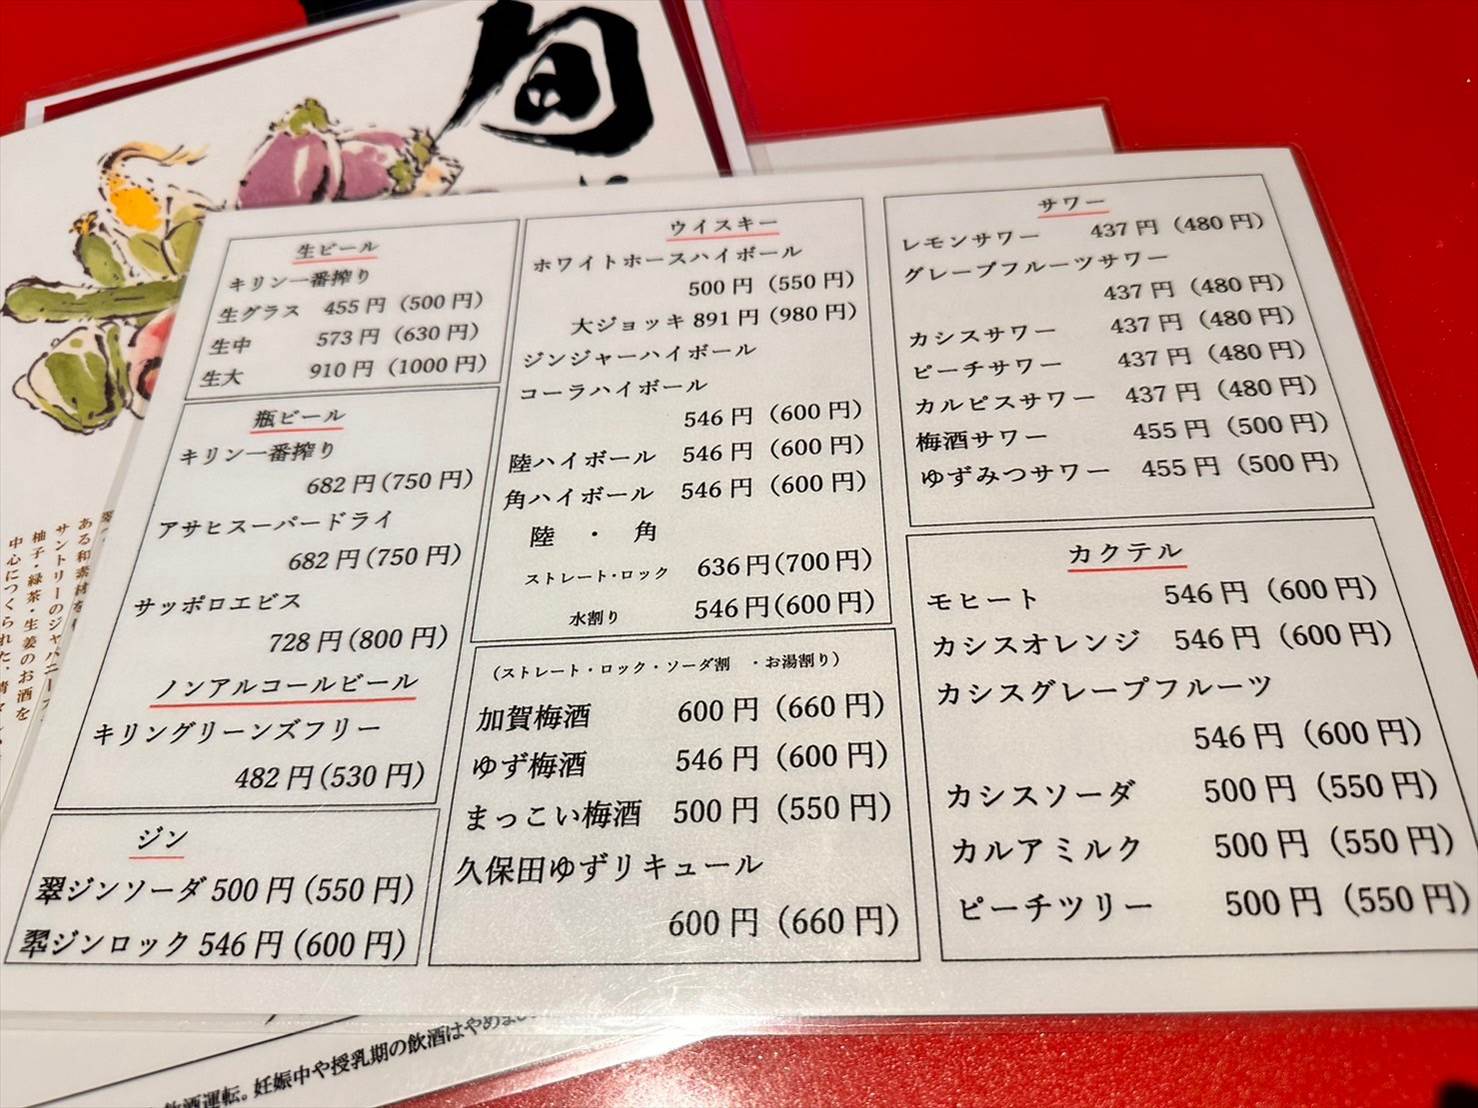 旬
生ビール
キリン一番搾り
生グラス 455円(500円)
生中 573円(630円)
生大 910円(1000円)
瓶ビール
キリン一番搾り
682円(750円)
アサヒスーパードライ
682円(750円)
サッポロエビス
728円(800円)
ノンアルコールビール
キリングリーンズフリー
482円(530円)
ジン
翠ジンソーダ 500円(550円)
翆ジンロック 546円(600円)
ウイスキー
ホワイトホースハイボール
500円(550円)
大ジョッキ 891円(980円)
ジンジャーハイボール
コーラハイボール
546円(600円)
陸ハイボール 546円(600円)
角ハイボール 546円(600円)
陸 ・ 角
ストレート・ロック 636円(700円)
水割り 546円(600円)
(ストレート・ロック・ソーダ割 ・お湯割り)
加賀梅酒 600円(660円)
ゆず梅酒 546円(600円)
まっこい梅酒 500円(550円)
久保田ゆずリキュール
600円(660円)
サワー
レモンサワー 437円(480円)
グレープフルーツサワー
437円(480円)
カシスサワー 437円(480円)
ピーチサワー 437円(480円)
カルピスサワー 437円(480円)
梅酒サワー 455円(500円)
ゆずみつサワー 455円(500円)
カクテル
モヒート 546円(600円)
カシスオレンジ 546円(600円)
カシスグレープフルーツ
546円(600円)
カシスソーダ 500円(550円)
カルアミルク 500円(550円)
ピーチツリー 500円(550円)
ある和素材を
サントリーのジャパニーズ
柚子・緑茶・生姜のお酒を
中心につくられた、清
飲酒運転。妊娠中や授乳期の飲酒はやめ